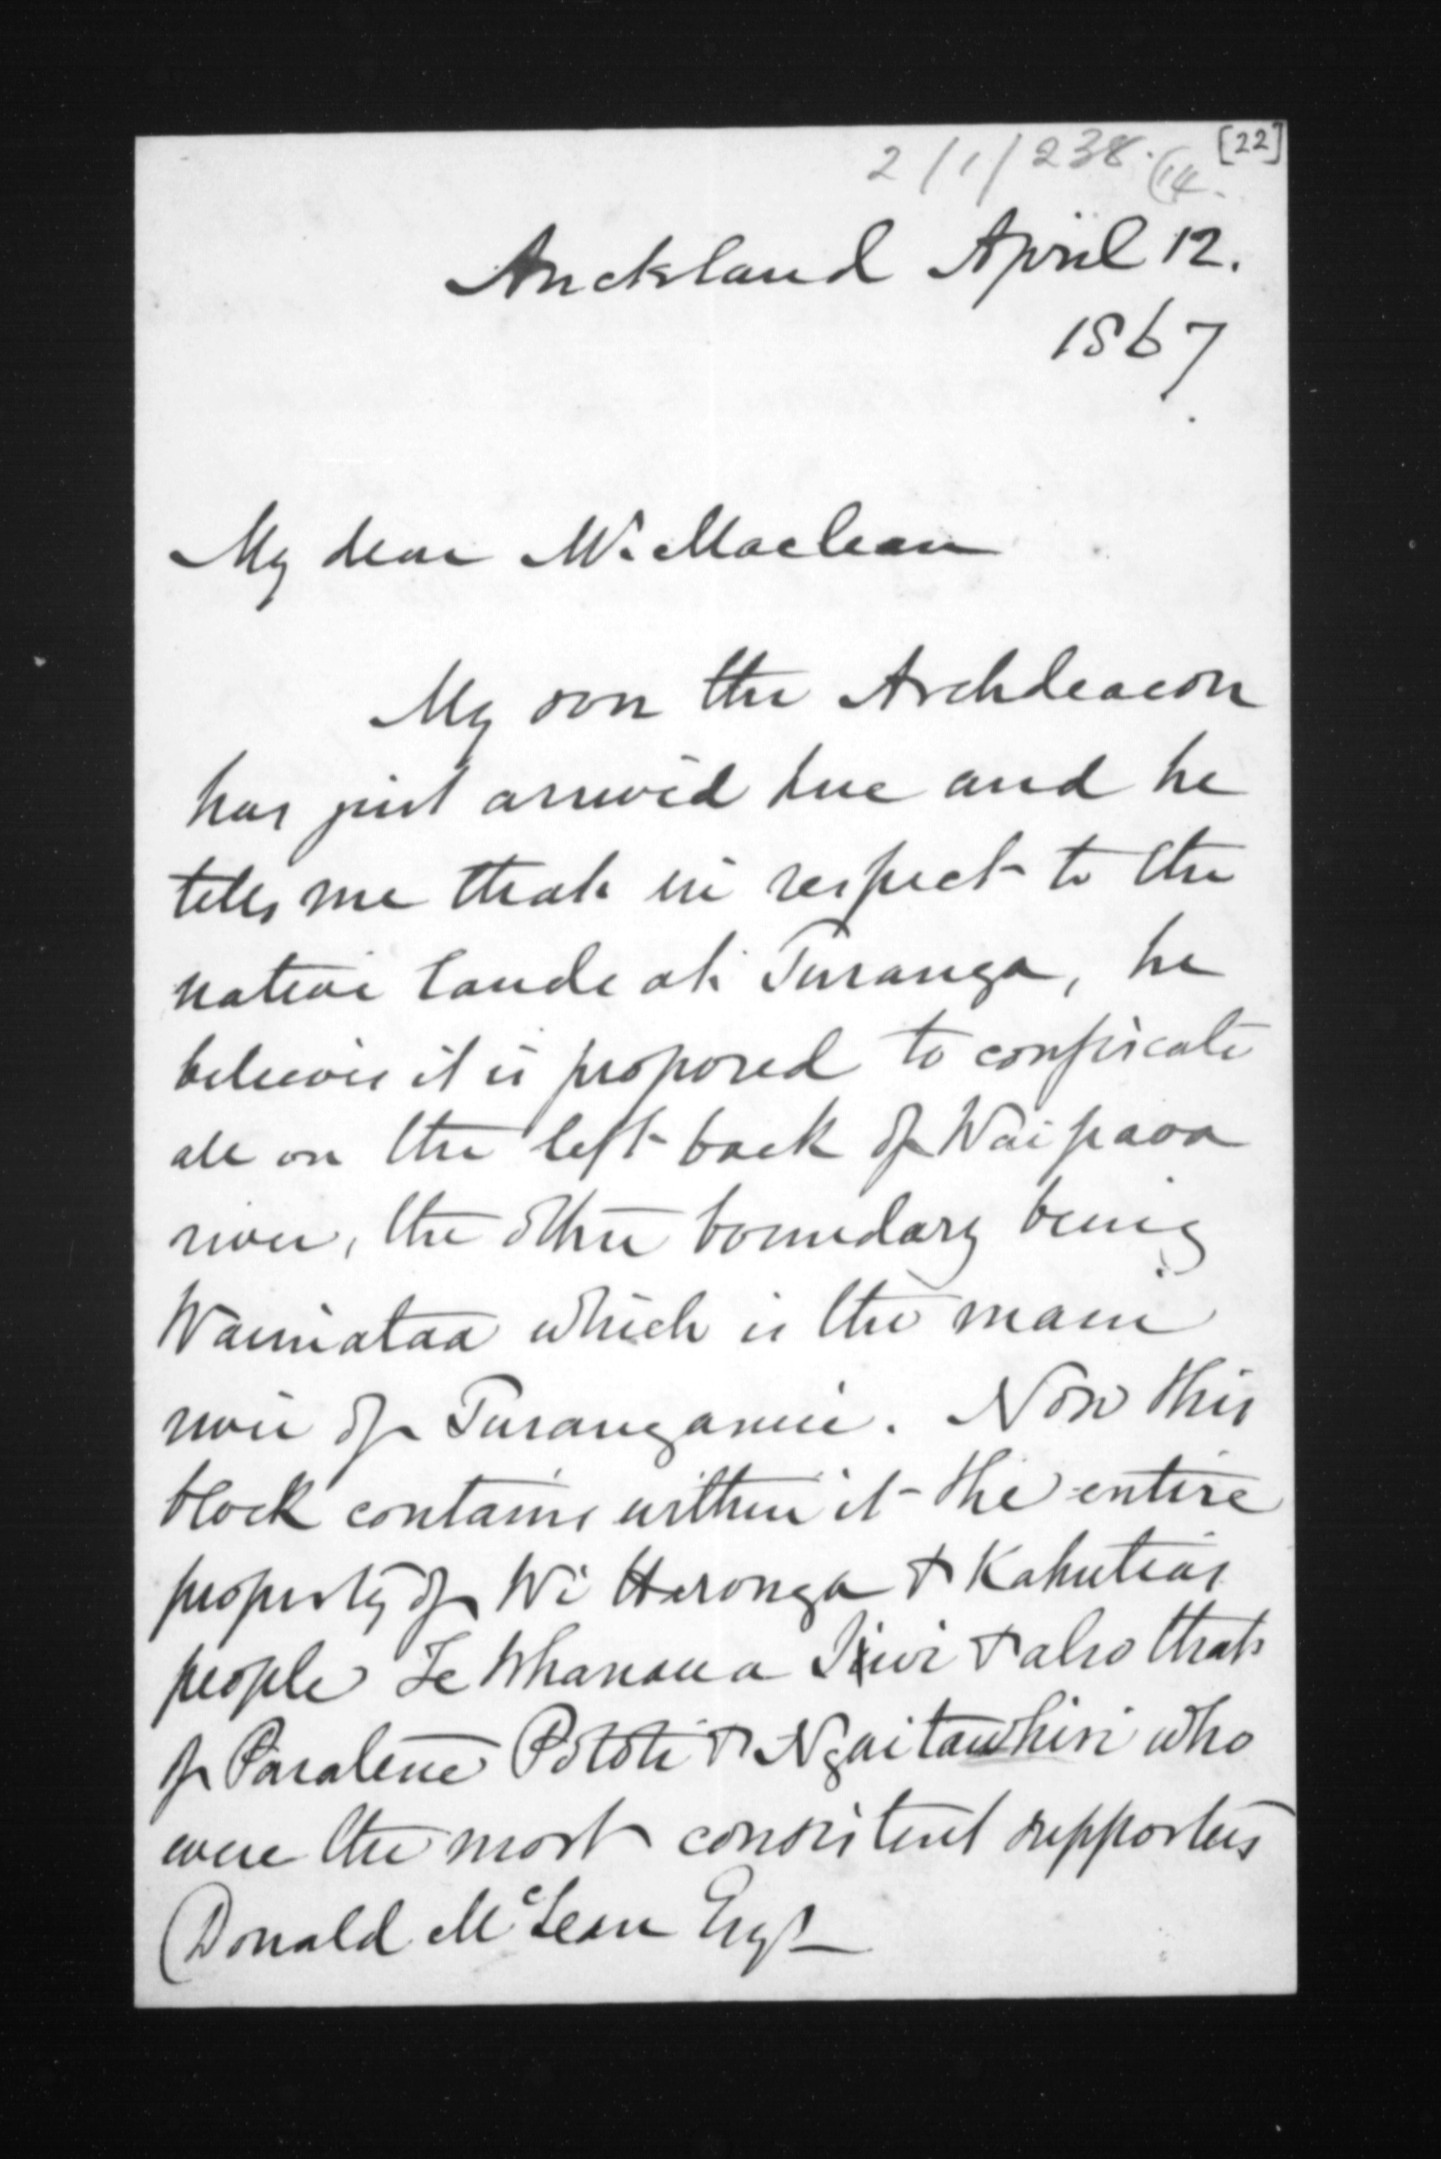 2/1/238. (14.
[22]
Auckland April 12.
1867
My dear Mr. Maclean
My son the Archdeacon
has just arrived here and he
tells me that in respect to the
native lands at Turanga, he
believes it is proposed to confiscate
all on the left bank of Waipaoa
river, the other boundary being
Waimataa which is the main
river of Turanganui. Now this
block contains within it the entire
property of Wi Haronga & Kahutias
people Te Whanau a Iwi & also that
of Paratene Pototi & Ngaitawhiri who
were the most consistent supporters
Donald McLean Esqr